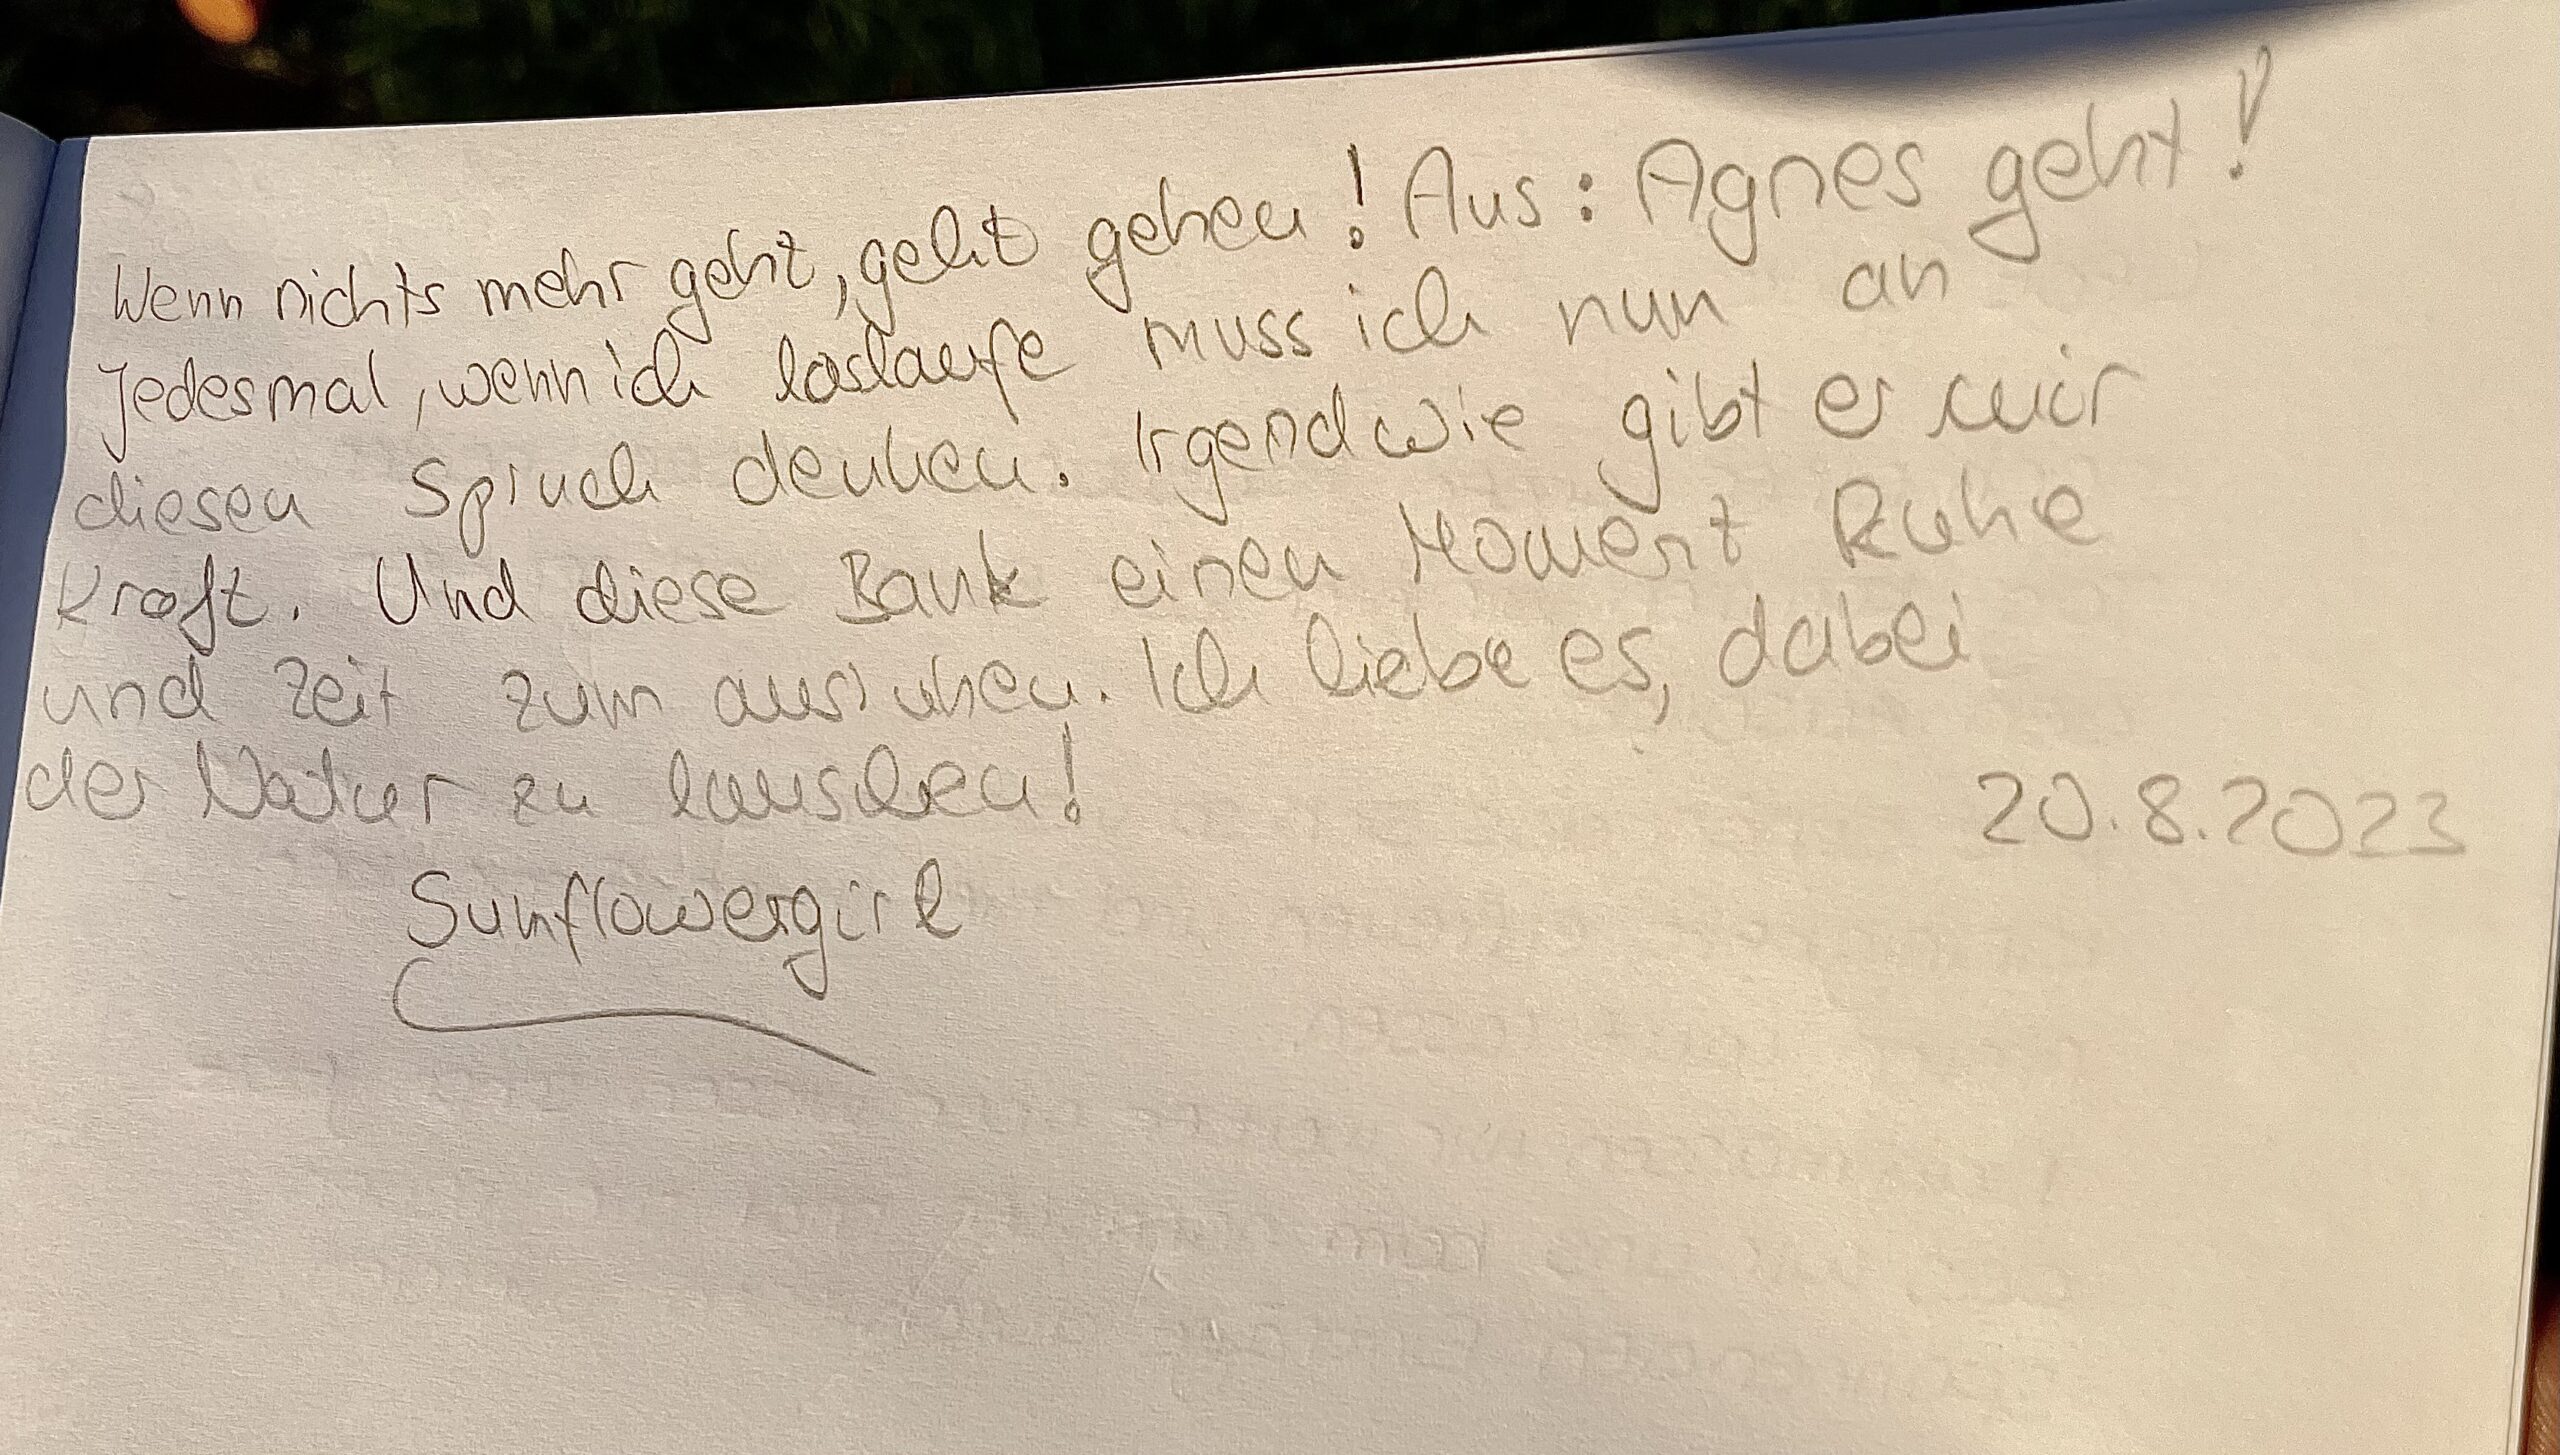 Wenn nichts mehr geht, geht gehen! Aus: Agnes geht!
Jedesmal, wenn ich loslaufe muss ich nun an
diesen Spruch denken. Irgendwie gibt er mir
Kraft. Und diese Bank einen Moment Ruhe
und Zeit zum ausruhen. Ich liebe es, dabei
der Natur zu lauschen!
20.8.2023
Sunflowergirl